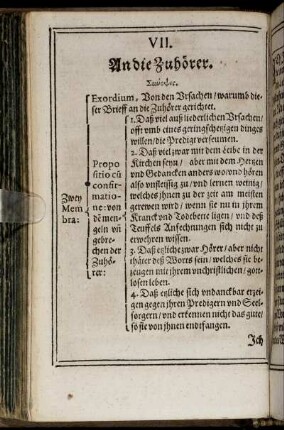 VII.
An die Zuhörer.
Σύνοψις.
Exordium, Von den Vrsachen / warumb die-
ser Brieff an die Zuhörer gerichtet.
Zwey
Mem
bra:
Propo
sitio cũ
confir-
matio-
ne: von
dē men-
geln vñ
gebre-
chen der
Zuhö-
rer:
1. Daß viel auß liederlichen Vrsachen /
offt vmb eines geringschetzigen dinges
willen / die Predigt verseumen.
2. Daß viel zwar mit dem Leibe in der
Kirchen seyn / aber mit dem Hertzen
vnd Gedancken anders wo / vnd hören
also vnfleissig zu / vnd lernen wenig /
welches jhnen zu der zeit am meisten
gerewen wird / wenn sie nu in jhrem
Kranck vnd Todebette ligen / vnd deß
Teuffels Anfechtungen sich nicht zu
erwehren wissen.
3. Daß etzliche zwar Hörer / aber nicht
thäter deß Worts sein / welches sie be-
zeugen mit jhrem vnchristlichen / gott-
losen leben.
4. Daß etzliche sich vndanckbar erzei-
gen gegen jhren Predigern vnd Seel-
sorgern / vnd erkennen nicht das gute /
so sie von jhnen endtfangen.
Ich